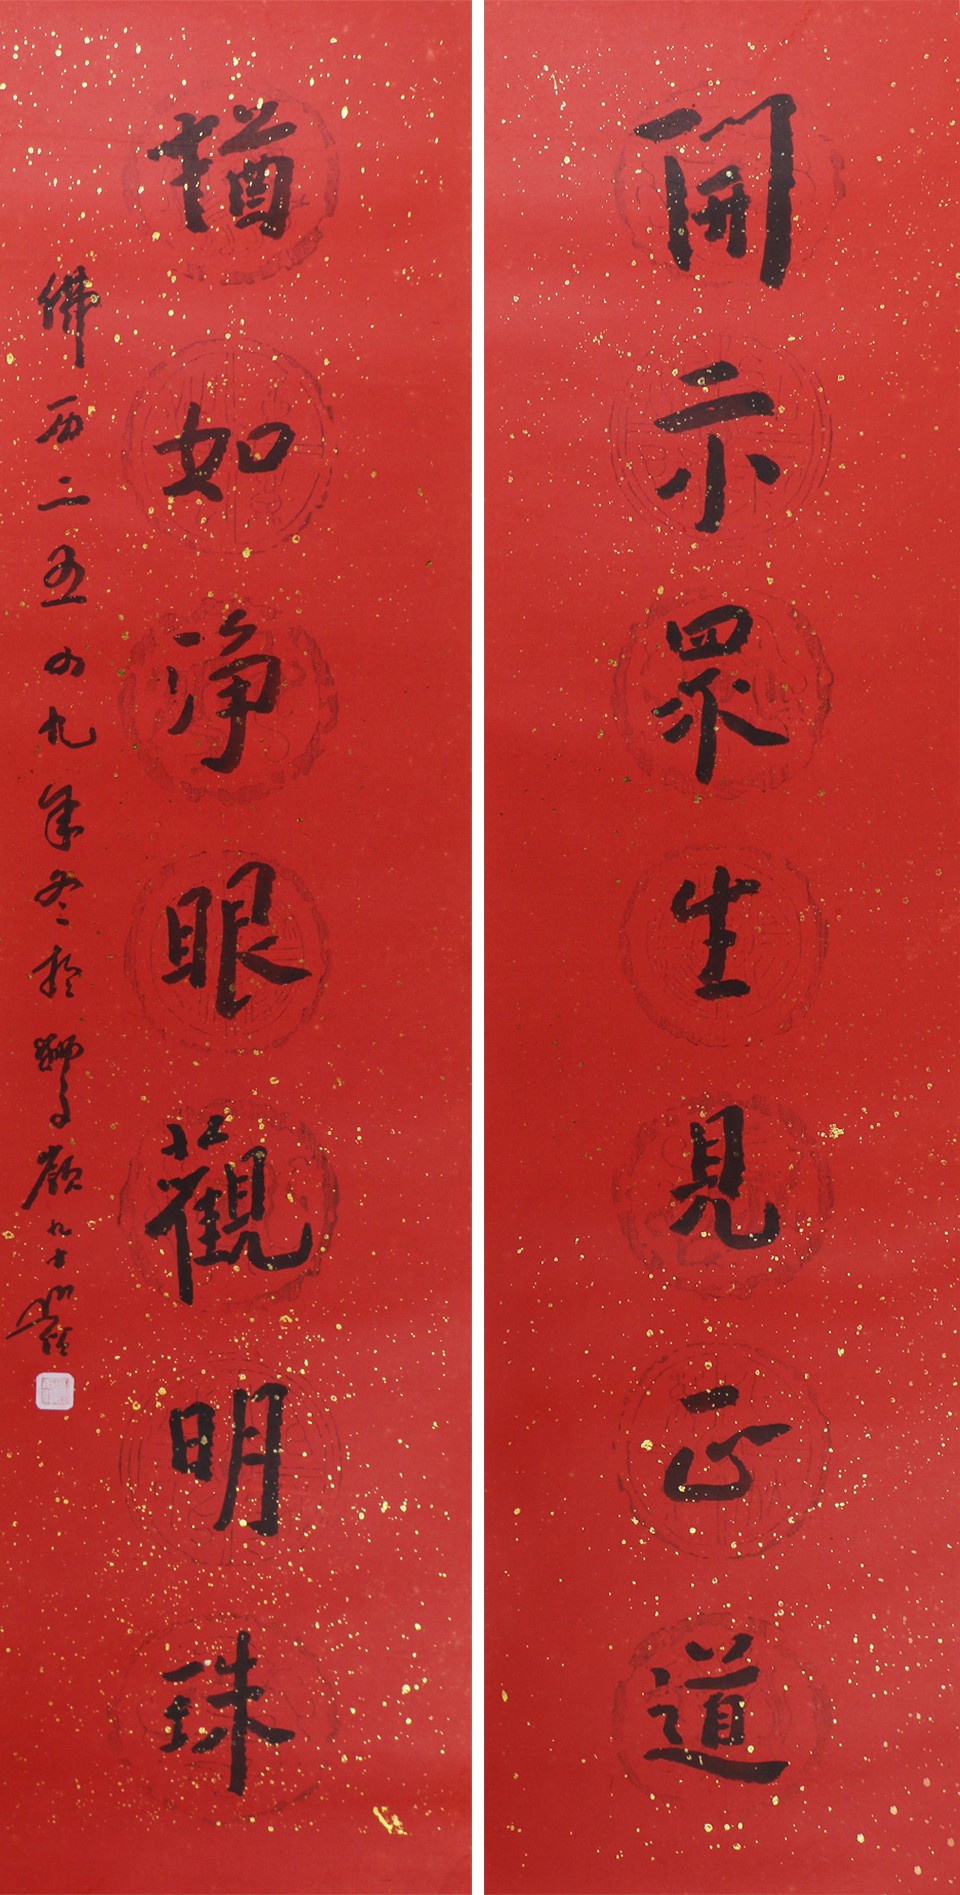 開示眾生見正道
猶如淨眼觀明珠
佛曆二五五九年冬於獅子九十